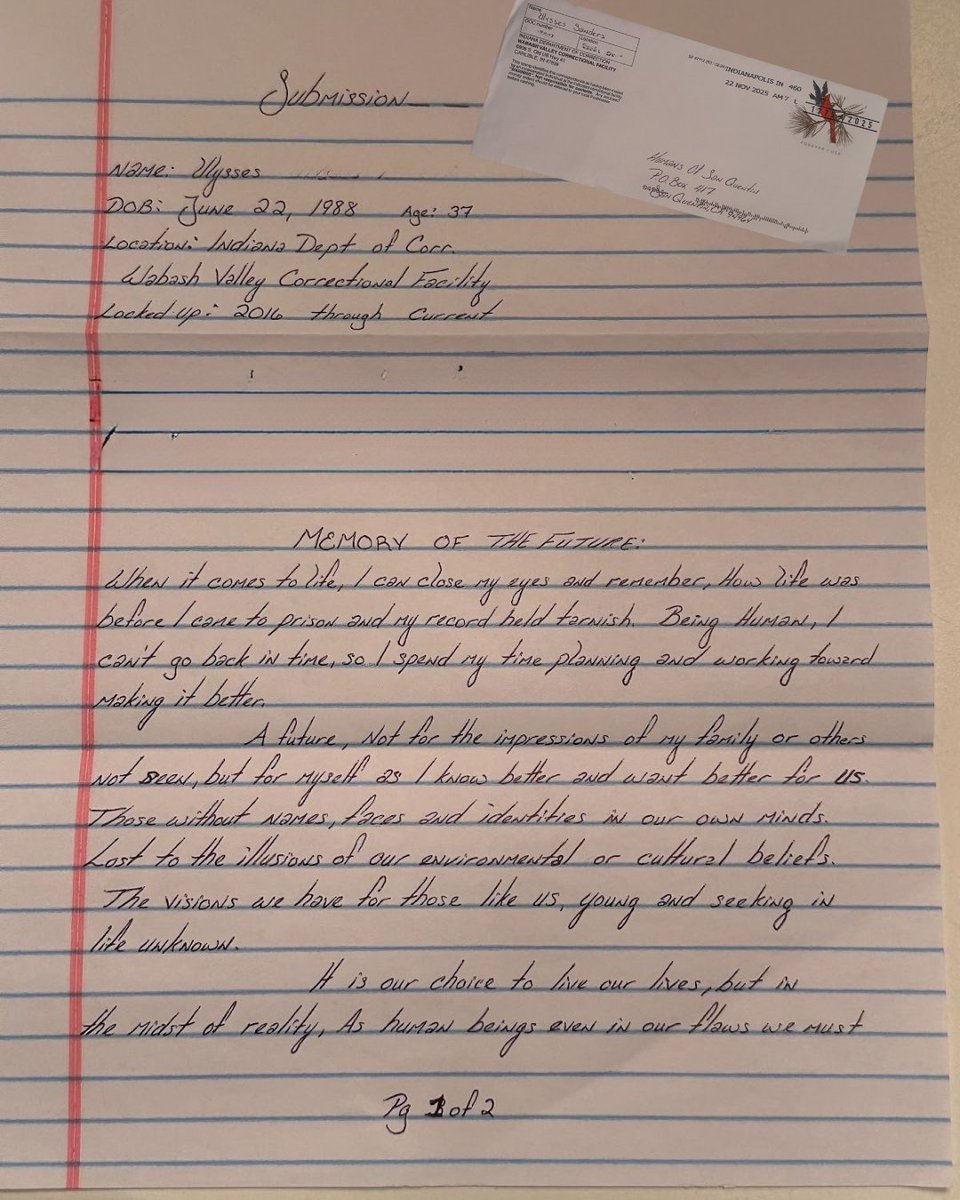 Submission
Name: Ulysses
DOB: June 22, 1988 Age: 37
Location: Indiana Dept of Corr.
Wabash Valley Correctional Facility
Locked up: 2016 through current
Name
Ulysses Sanders
DOC number
Location
INDIANA DEPARTMENT OF CORRECTION
WABASH VALLEY CORRECTIONAL FACILITY
CARLISLE, IN 47838
INDIANAPOLIS IN 460
22 NOV 2025 AM 7 L
FOREVER / USA
Humans Of San Quentin
P.O. Box 417
San Quentin, CA
MEMORY OF THE FUTURE:
When it comes to life, I can close my eyes and remember, How life was
before I came to prison and my record held tarnish. Being Human, I
can't go back in time, so I spend my time planning and working toward
making it better.
A future, Not for the impressions of my family or others
not seen, but for myself as I know better and want better for us.
Those without names, faces and identities in our own minds.
Lost to the illusions of our environmental or cultural beliefs.
The visions we have for those like us, young and seeking in
life unknown.
It is our choice to live our lives, but in
the midst of reality, As human beings even in our flaws we must
Pg 1 of 2